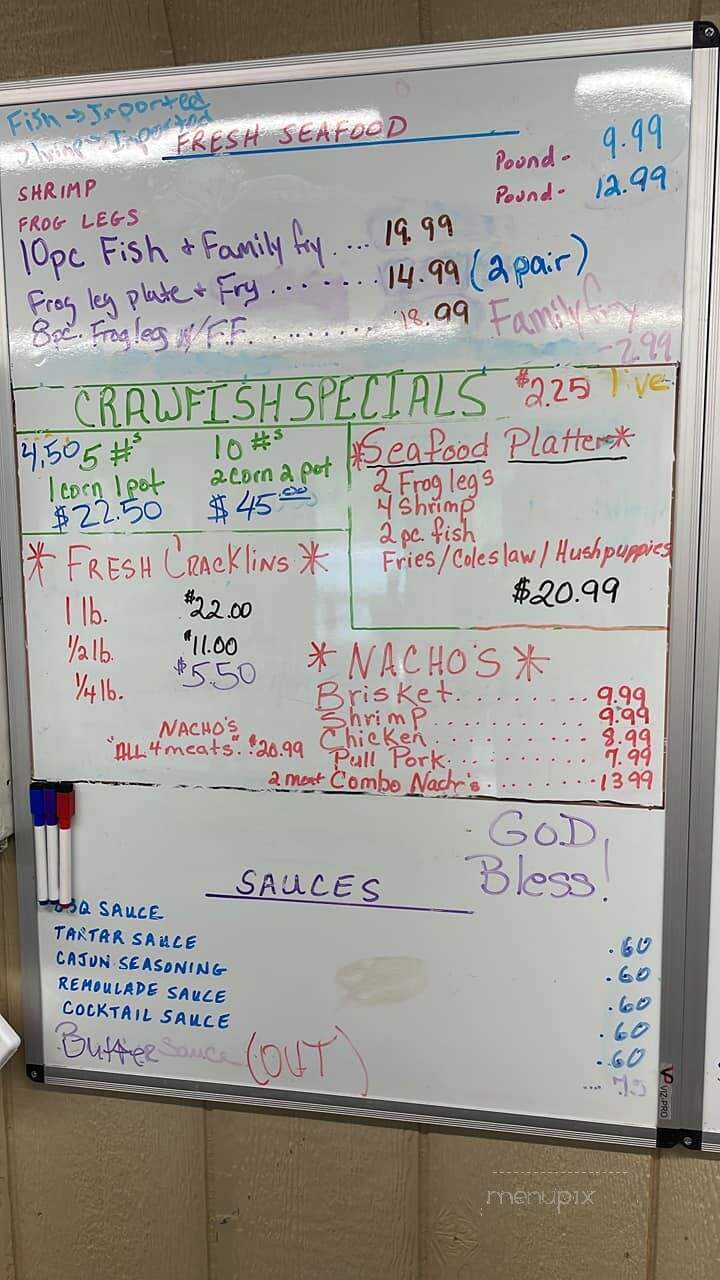 Fish → Imported
Shrimp → Imported
FRESH SEAFOOD
SHRIMP Pound - 9.99
FROG LEGS Pound - 12.99
10pc Fish + Family fry .... 19.99
Frog leg plate + Fry ........ 14.99 (2 pair)
8pc. Frog leg w/F.F. ......... 18.99 Family fry
-2.99
CRAWFISH SPECIALS $2.25 live
4.50 5 #s
1 corn 1 pot
$22.50
10 #s
2 corn 2 pot
$45.00
*Seafood Platter*
2 Frog legs
4 Shrimp
2 pc. fish
Fries/Coleslaw/Hushpuppies
$20.99
* FRESH CRACKLINS *
1 lb. $22.00
1/2 lb. $11.00
1/4 lb. $5.50
* NACHO'S *
Brisket .......... 9.99
Shrimp .......... 9.99
Chicken .......... 8.99
Pull Pork .......... 7.99
2 meat Combo Nacho's ........ 13.99
NACHO'S
"ALL 4 meats". $20.99
GOD
Bless!
SAUCES
BBQ SAUCE .60
TARTAR SAUCE .60
CAJUN SEASONING .60
REMOULADE SAUCE .60
COCKTAIL SAUCE .60
Butter Sauce (OUT) ... .75
VIZ-PRO
menupix